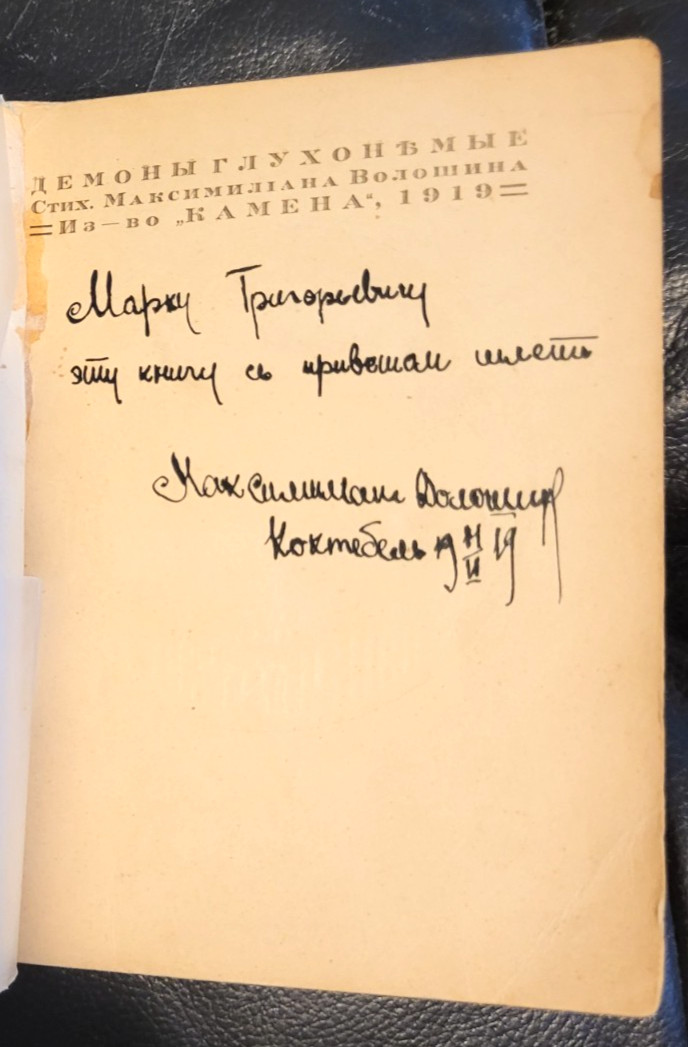 ДЕМОНЫ ГЛУХОНѢМЫЕ
Стих. Максимиліана Волошина
=Из—во „КАМЕНА“, 1919=
Марку Григорьевичу
эту книгу съ привѣтом шлетъ
Максимилиан Волошин
Коктебель 19 19